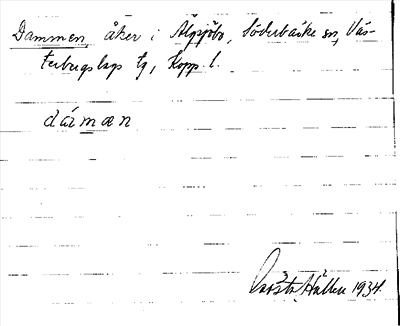 Dammen, åker i Älgsjöbo, Söderbärke sn, Väs-
terbergslags tg, Kopp. l.
dámæn
Gösta Hallen 1934.